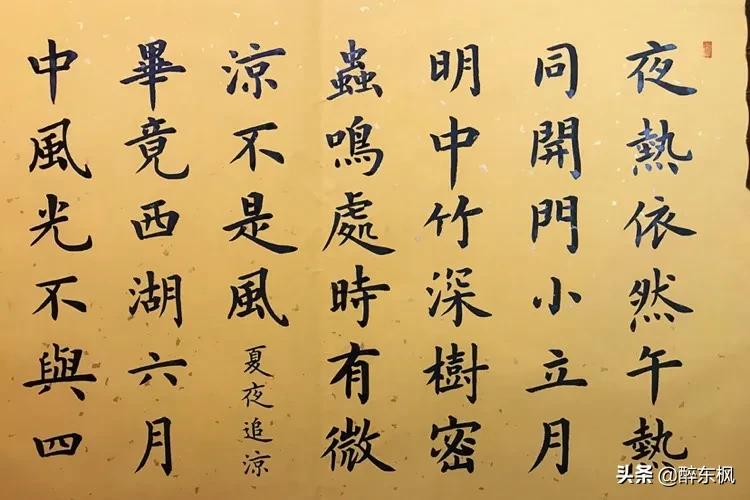 夜熱依然午熱
同開門小立月
明中竹深樹密
蟲鳴處時有微
涼不是風
夏夜追涼
畢竟西湖六月
中風光不與四
头条 @醉东枫